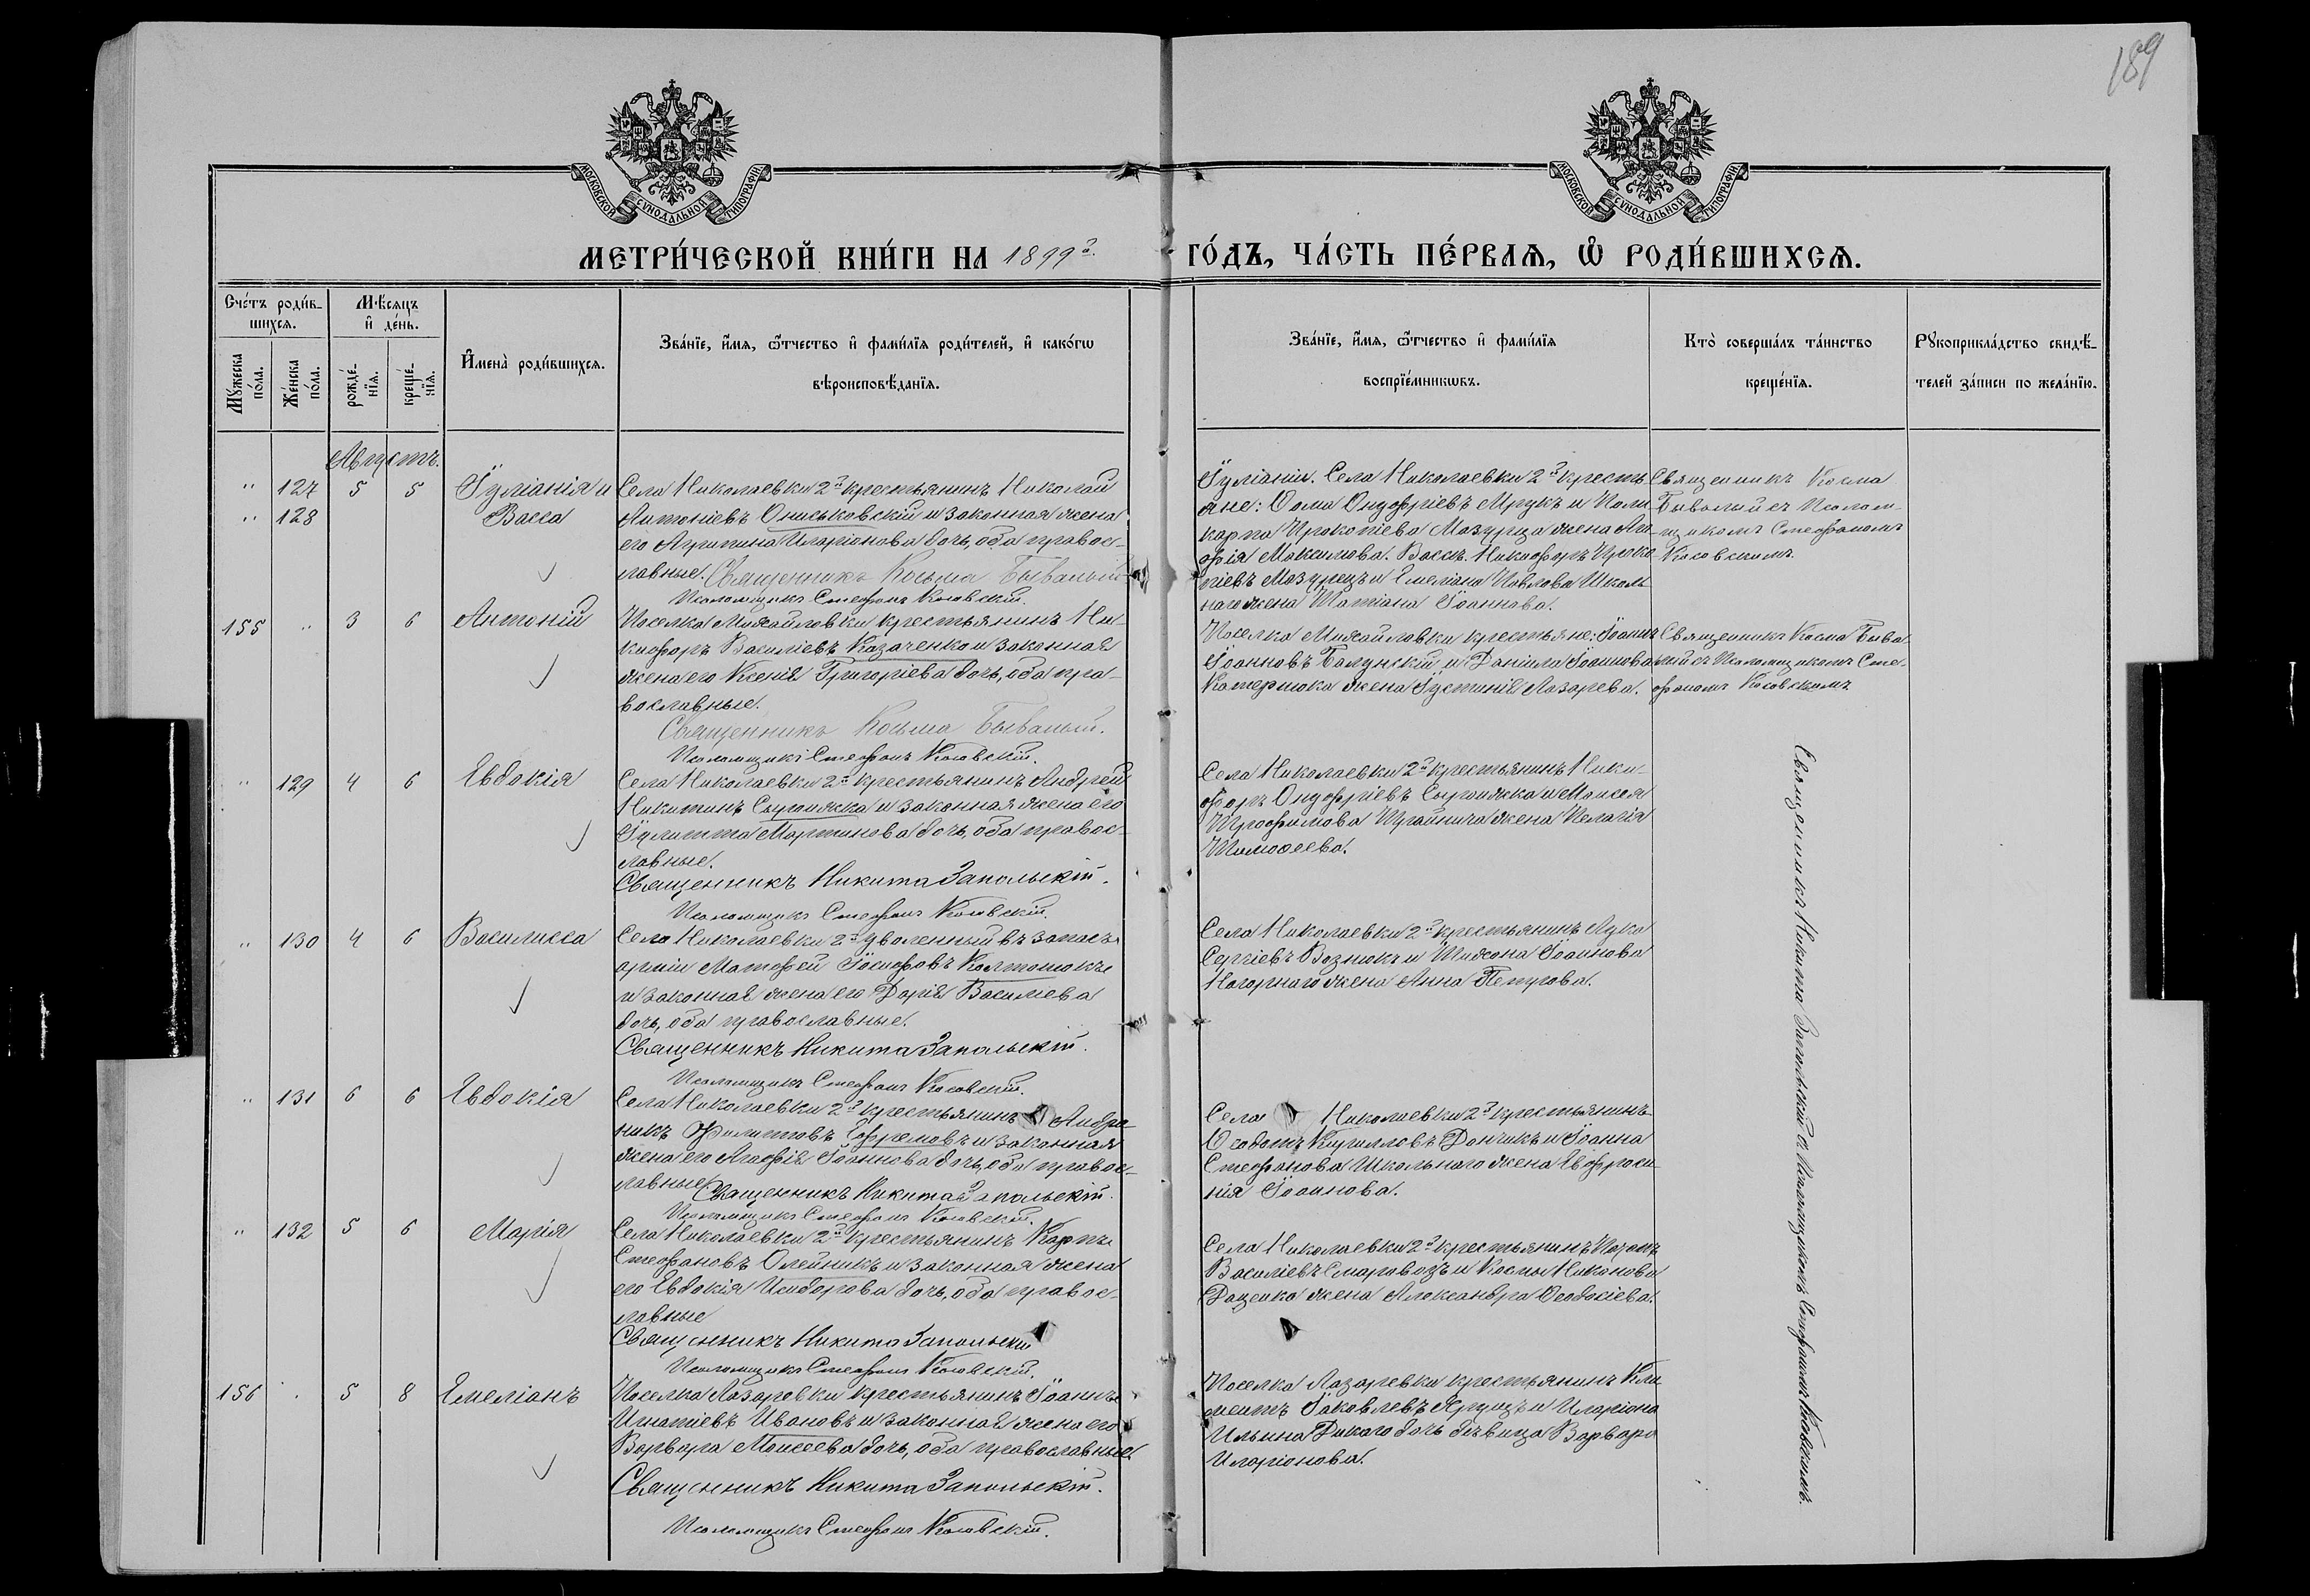 189
МОСКОВСКОЙ СѴНОДАЛЬНОЙ ТИПОГРАФІИ
МОСКОВСКОЙ СѴНОДАЛЬНОЙ ТИПОГРАФІИ
МЕТРИ́ЧЕСКОЙ КНИ́ГИ НА 1899 г. ГО́ДЪ, ЧА́СТЬ ПЕ́РВАѦ, Ѡ҆ РОДИ́ВШИХСѦ.
Сче́тъ роди́в-
шихсѧ.
Мѣ́сѧцъ
и҆ де́нь.
Мꙋ́жеска
по́ла.
Же́нска
по́ла.
рожде́-
нїѧ.
креще́-
нїѧ.
И҆мена̀ роди́вшихсѧ.
Зва́нїе, и҆́мѧ, ѻ҆́тчество и҆ фами́лїѧ роди́телей, и҆ како́гѡ
вѣроисповѣ́данїѧ.
Зва́нїе, и҆́мѧ, ѻ҆́тчество и҆ фами́лїѧ
воспрїе́мникѡвъ.
Кто̀ соверша́лъ та́инство
креще́нїѧ.
Рꙋкоприкла́дство свидѣ́-
телей за́писи по жела́нїю.
Августъ.
" 127 5 5 Іуліанія и
" 128 Васса
Села Николаевки 2й крестьянинъ Николай
Антоніевъ Ониськовскій и законная жена
его Агрипина Иларіонова дочь, оба правос-
лавные. Священникъ Косьма Бывалый
Псаломщикъ Стефанъ Косовскій.
Іуліаніи. Села Николаевки 2й кресть
яне: Ѳома Онуфріевъ Мрукъ и Поли
карпа Прокопіева Мазурца жена Ага
фія Максимова. Вассы. Никифоръ Проко
піевъ Мазурецъ и Емеліана Павлова Школь
наго жена Татіана Іоаннова.
Священникъ Косма
Бывалый съ Псалом-
щикомъ Стефаномъ
Косовскимъ.
155 " 3 6 Антоній
Поселка Михайловки крестьянинъ Ни-
кифоръ Василіевъ Казаченко и законная
жена его Ксенія Григоріева дочь, оба пра-
вославные.
Священникъ Косьма Бывалый.
Псаломщикъ Стефанъ Косовскій.
Поселка Михайловки крестьяне: Іоаннъ
Іоанновъ Балунскій и Даніила Іоаннова
жена Іустинія Лазарева.
Священникъ Косма Быва
лый съ Псаломщикомъ Сте-
фаномъ Косовскимъ
" 129 4 6 Евдокія
Села Николаевки 2й крестьянинъ Андрей
Никитинъ Сыроижка и законная жена его
Іулитта Мартинова дочь, оба правос-
лавные.
Священникъ Никита Запольскій.
Псаломщикъ Стефанъ Косовскій.
Села Николаевки 2й крестьянинъ Ники-
форъ Онуфріевъ Сыроижка и Моисея
Трофимова жена Пелагія
Тимоѳеева.
" 130 4 6 Василисса
Села Николаевки 2й уволенный въ запасъ
арміи Матфей Іосифовъ Колтонюкъ
и законная жена его Дарія Василіева
дочь, оба православные.
Священникъ Никита Запольскій.
Псаломщикъ Стефанъ Косовскій.
Села Николаевки 2й крестьянинъ Лука
Сергіевъ Вознюкъ и Тихона Іоаннова
Нагорнаго жена Анна Петрова.
" 131 6 6 Евдокія
Села Николаевки 2й крестьянинъ Андро-
никъ Филиповъ Ефремовъ и законная
жена его Агафія Іоаннова дочь, оба правос-
лавные. Священникъ Никита Запольскій.
Псаломщикъ Стефанъ Косовскій.
Села Николаевки 2й крестьянинъ
Ѳеодотъ Кирилловъ Данчикъ и Іоанна
Стефанова Школьнаго жена Евфроси-
нія Іоаннова.
" 132 5 6 Марія
Села Николаевки 2й крестьянинъ Карпъ
Стефановъ Олейникъ и законная жена
его Евдокія Исидорова дочь, оба правос-
лавные
Священникъ Никита Запольскій
Псаломщикъ Стефанъ Косовскій.
Села Николаевки 2й крестьянинъ
Василіевъ Старовозъ и Космы Никонова
Даценка жена Александра Ѳеодосіева.
156 " 5 8 Емеліанъ
Поселка Лазаревки крестьянинъ Іоаннъ
Игнатіевъ Ивановъ и законная жена его
Варвара Моисеева дочь, оба православные.
Священникъ Никита Запольскій.
Псаломщикъ Стефанъ Косовскій.
Поселка Лазаревки крестьянинъ Кли
ментъ Іаковлевъ и Иларіона
Ильина Дикаго дочь дѣвица Варвара
Иларіонова.
Священникъ Никита Запольскій съ Псаломщикомъ Стефаномъ Косовскимъ.